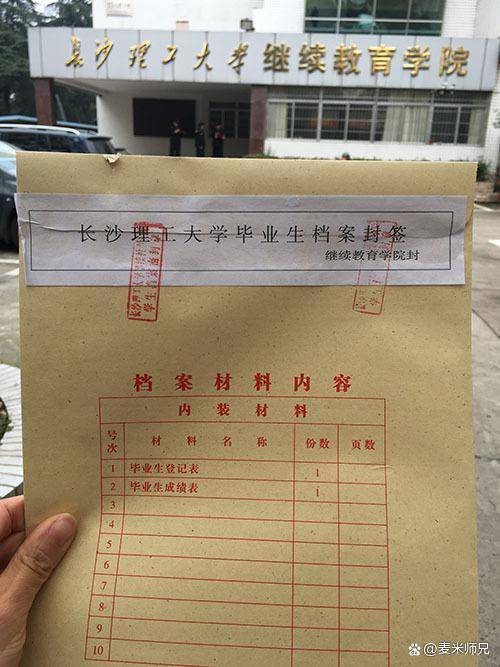 长沙理工大学继续教育学院
长沙理工大学毕业生档案封签
继续教育学院封
学生档案密封章
档案材料内容
内装材料
号次 材料名称 份数 页数
1 毕业生登记表 1
2 毕业生成绩表 1
3
4
5
6
7
8
9
10
@麦米师兄